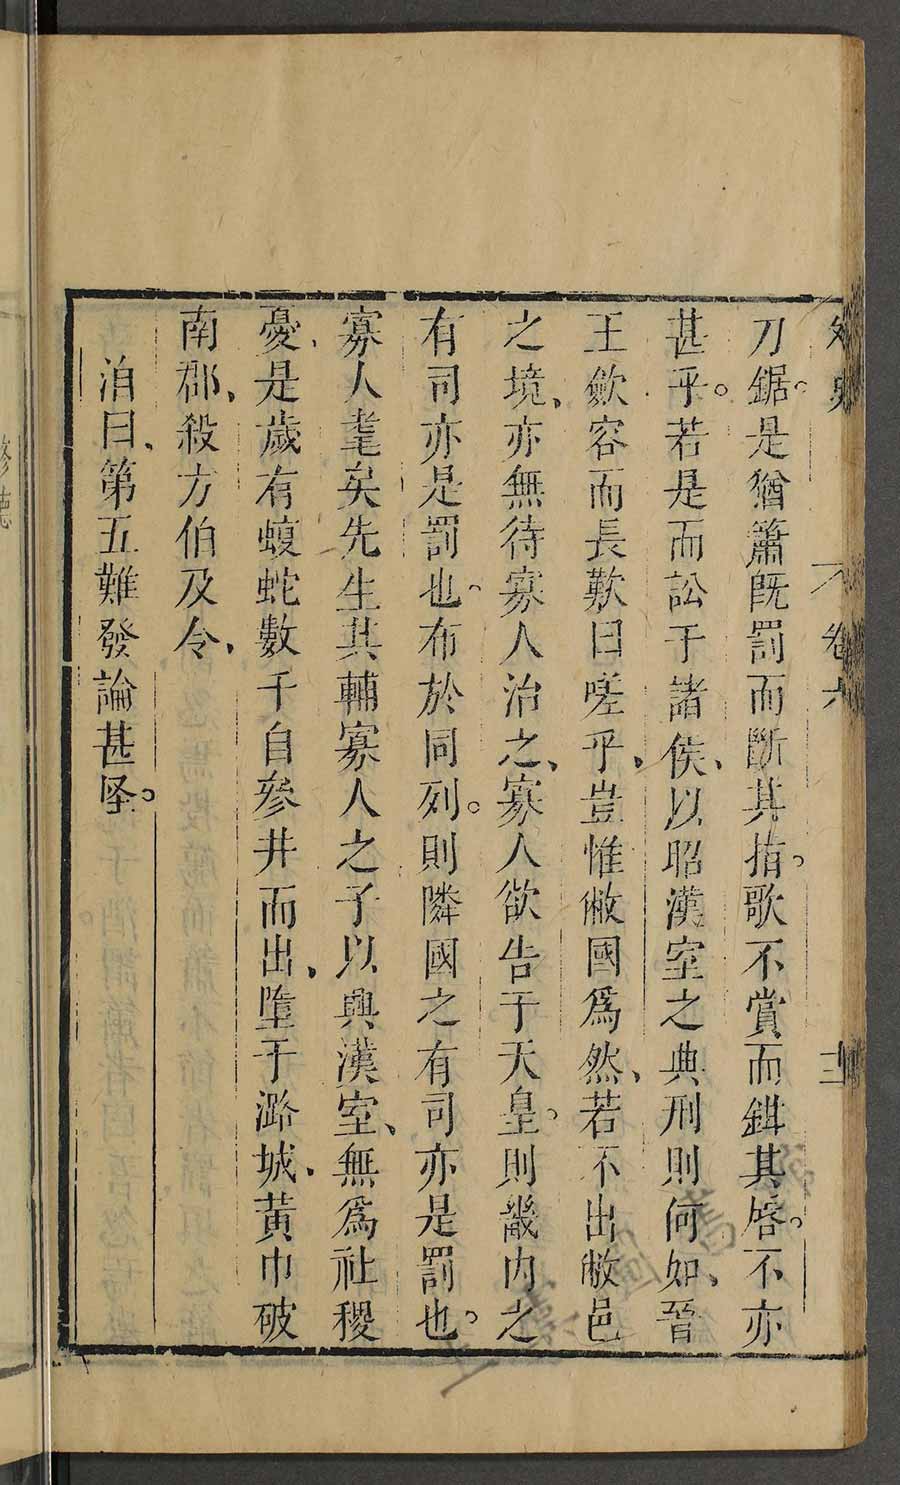 刀鋸。是猶簫既罰而斷其指。歌不賞而鉗其唇。不亦
甚乎。若是而訟于諸侯、以昭漢室之典刑則何如、晉
王歛容而長歎曰嗟乎、豈惟敝國爲然、若不出敝邑
之境、亦無待寡人治之、寡人欲告于天皇。則畿内之
有司亦是罰也。布於同列。則隣國之有司亦是罰也。
寡人耄矣先生其輔寡人之子以興漢室、無爲社稷
憂、是歲有蝮蛇數千自參井而出、墮于潞城、黃巾破
南郡、殺方伯及令、
泊曰、第五難發論甚怪。
卷六